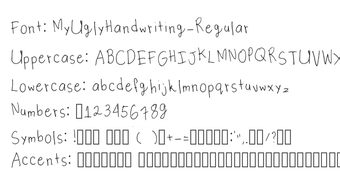 Font: MyUglyHandwriting-Regular
Uppercase: ABCDEFGHIJKLMNOPQRSTUVWX
Lowercase: abcdefghijklmnopqrstuvwxyz
Numbers: ▯123456789
Symbols: !▯▯▯ ▯▯▯ ( )▯+-=▯▯▯▯▯:'",.▯▯/?▯▯
Accents: ▯▯▯▯▯▯▯▯ ▯▯▯▯▯▯▯▯▯▯▯▯▯▯▯▯▯▯▯▯▯